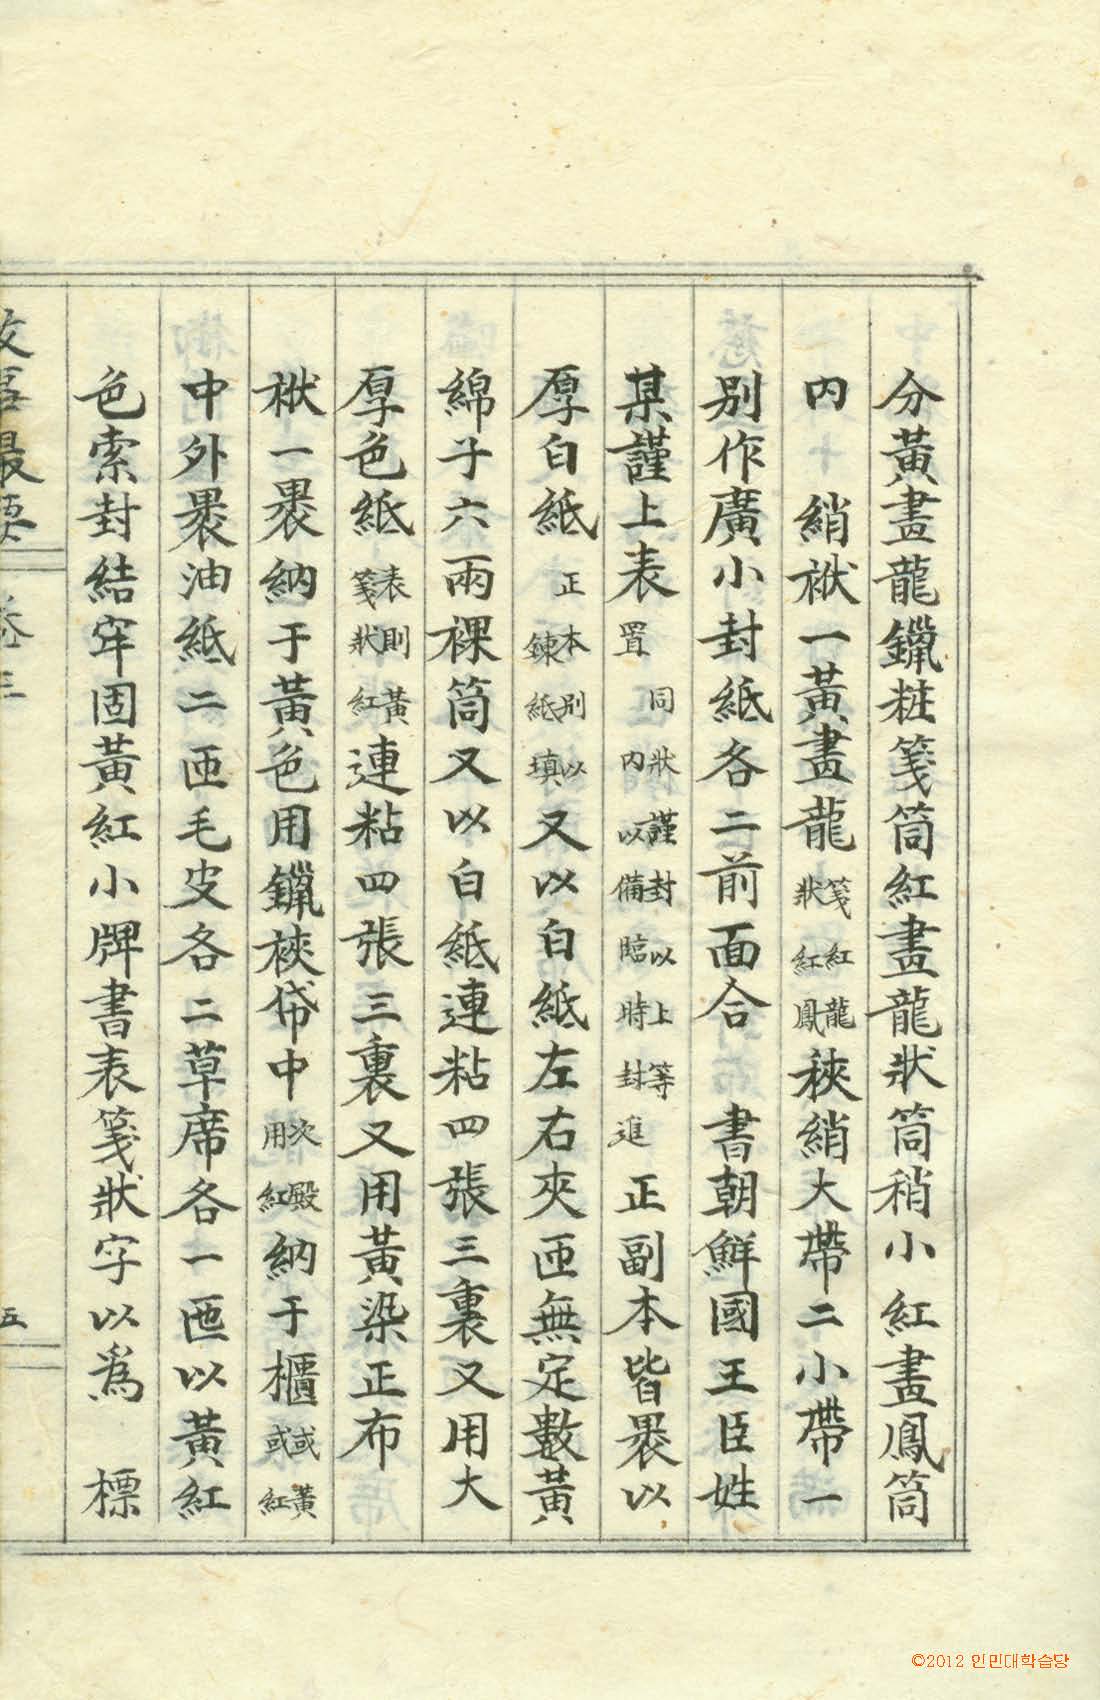 分黃畫龍鑞粧箋筒紅畫龍狀筒稍小紅畫鳳筒
內 綃袱一黃畫龍箋紅龍狀紅鳳裌綃大帶二小帶一
別作廣小封紙各二前面合 書朝鮮國王臣姓
某謹上表置同狀謹封以上等內以備臨時封進正副本皆褁以
厚白紙正本別以鍊紙填又以白紙左右夾匝無定數黃
綿子六兩裸筒又以白紙連粘四張三裏又用大
厚色紙表則黃箋狀紅連粘四張三裏又用黃染正布
袱一褁納于黃色用鑞裌帒中次殿用紅納于櫃或黃或紅
中外褁油紙二匝毛皮各二草席各一匝以黃紅
色索封結牢固黃紅小牌書表箋狀字以爲 標
攷事最要 卷三 五
©2012 인민대학습당